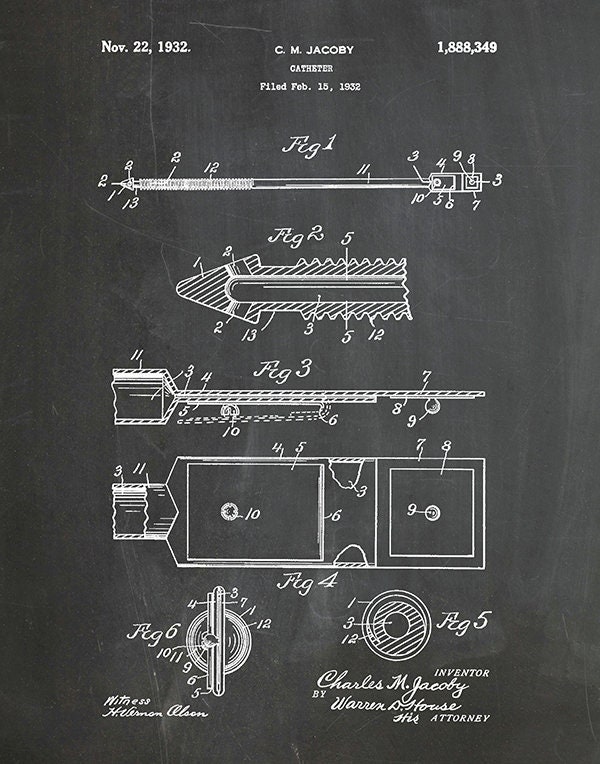 Nov. 22, 1932.
C. M. JACOBY
1,888,349
CATHETER
Filed Feb. 15, 1932
Fig 1
2 2 12 11 3 4 9 8
2 3
1 13 10 5 6 7
Fig 2
1 2 5
2 13 3 5 12
Fig 3
11 3 4 7
5 10 6 8 9
3 11 4 5 7 8
10 3 6 9
Fig 4
Fig 6
4 3 7 1 12
10 11 9 6 5
Fig 5
1 3 12
INVENTOR
Charles M. Jacoby
BY
Warren D. House
His ATTORNEY
Witness
H. Vernon Olson